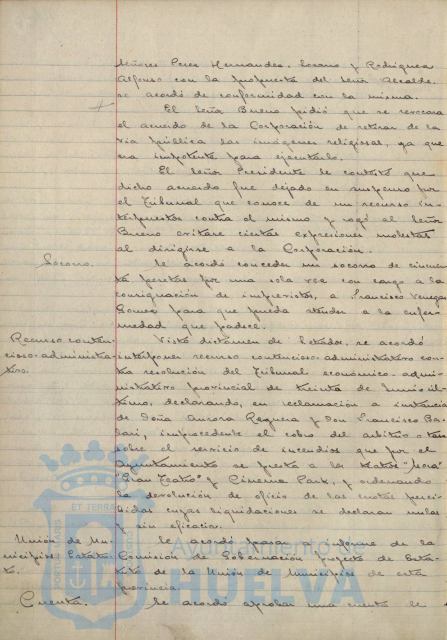 Señores Perez Hernandez, Lozano y Rodriguez
Alfonso con la propuesta del Señor Alcalde,
se acordó de conformidad con la misma.
El Señor Bueno pidió que se revocara
el acuerdo de la Corporación de retirar de la
via pública las imágenes religiosas, ya que
era impotente para ejecutarlo.
El Señor Presidente le contestó que
dicho acuerdo fue dejado en suspenso por
el Tribunal que conoce de un recurso in-
terpuesto contra el mismo y rogó al Señor
Bueno evitare ciertas expresiones molestas
al dirigirse a la Corporación.
Socorro.
Se acordó conceder un socorro de cincuen-
ta pesetas por una sola vez con cargo a la
consignación de imprevistos, a Francisco Venegas
Gomez para que pueda atender a la enfer-
medad que padece.
Recurso conten-
cioso-administra-
tivo.
Visto dictámen de Letrados, se acordó
interponer recurso contencioso-administrativo con-
tra resolución del Tribunal económico-admi-
nistrativo provincial de treinta de Junio úl-
timo, declarando, en reclamación a instancia
de Doña Aurora Reguera y Don Francisco
improcedente el cobro del arbitrio o tasa
sobre el servicio de incendios que por el
Ayuntamiento se presta a los teatros "Mora"
"Gran Teatro" y Cinema Park, y ordenando
la devolución de oficio de las cuotas perci-
bidas cuyas liquidaciones se declaran nulas
y sin eficacia.
Unión de Mu-
nicipios: Estatu-
to.
Se acordó pasar a informe de la
Comisión de Gobernación proyecto de Esta-
tuto de la Unión de Municipios de esta
provincia.
Cuenta.
Se acordó aprobar una cuenta de
PORTUS MARIS
ET TERRAE
Ayuntamiento de
HUELVA